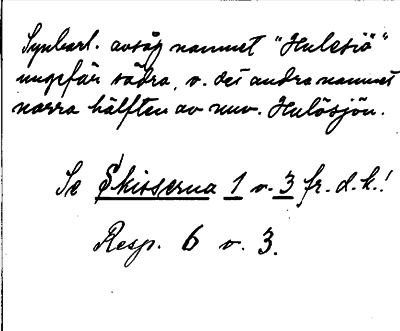 Synbarl. avsåg namnet "Hulesiö"
ungefär södra, o. det andra namnet
norra hälften av nuv. Hulösjön.
Se Skisserna 1 o. 3 fr. d. k.!
Resp. 6 o. 3.